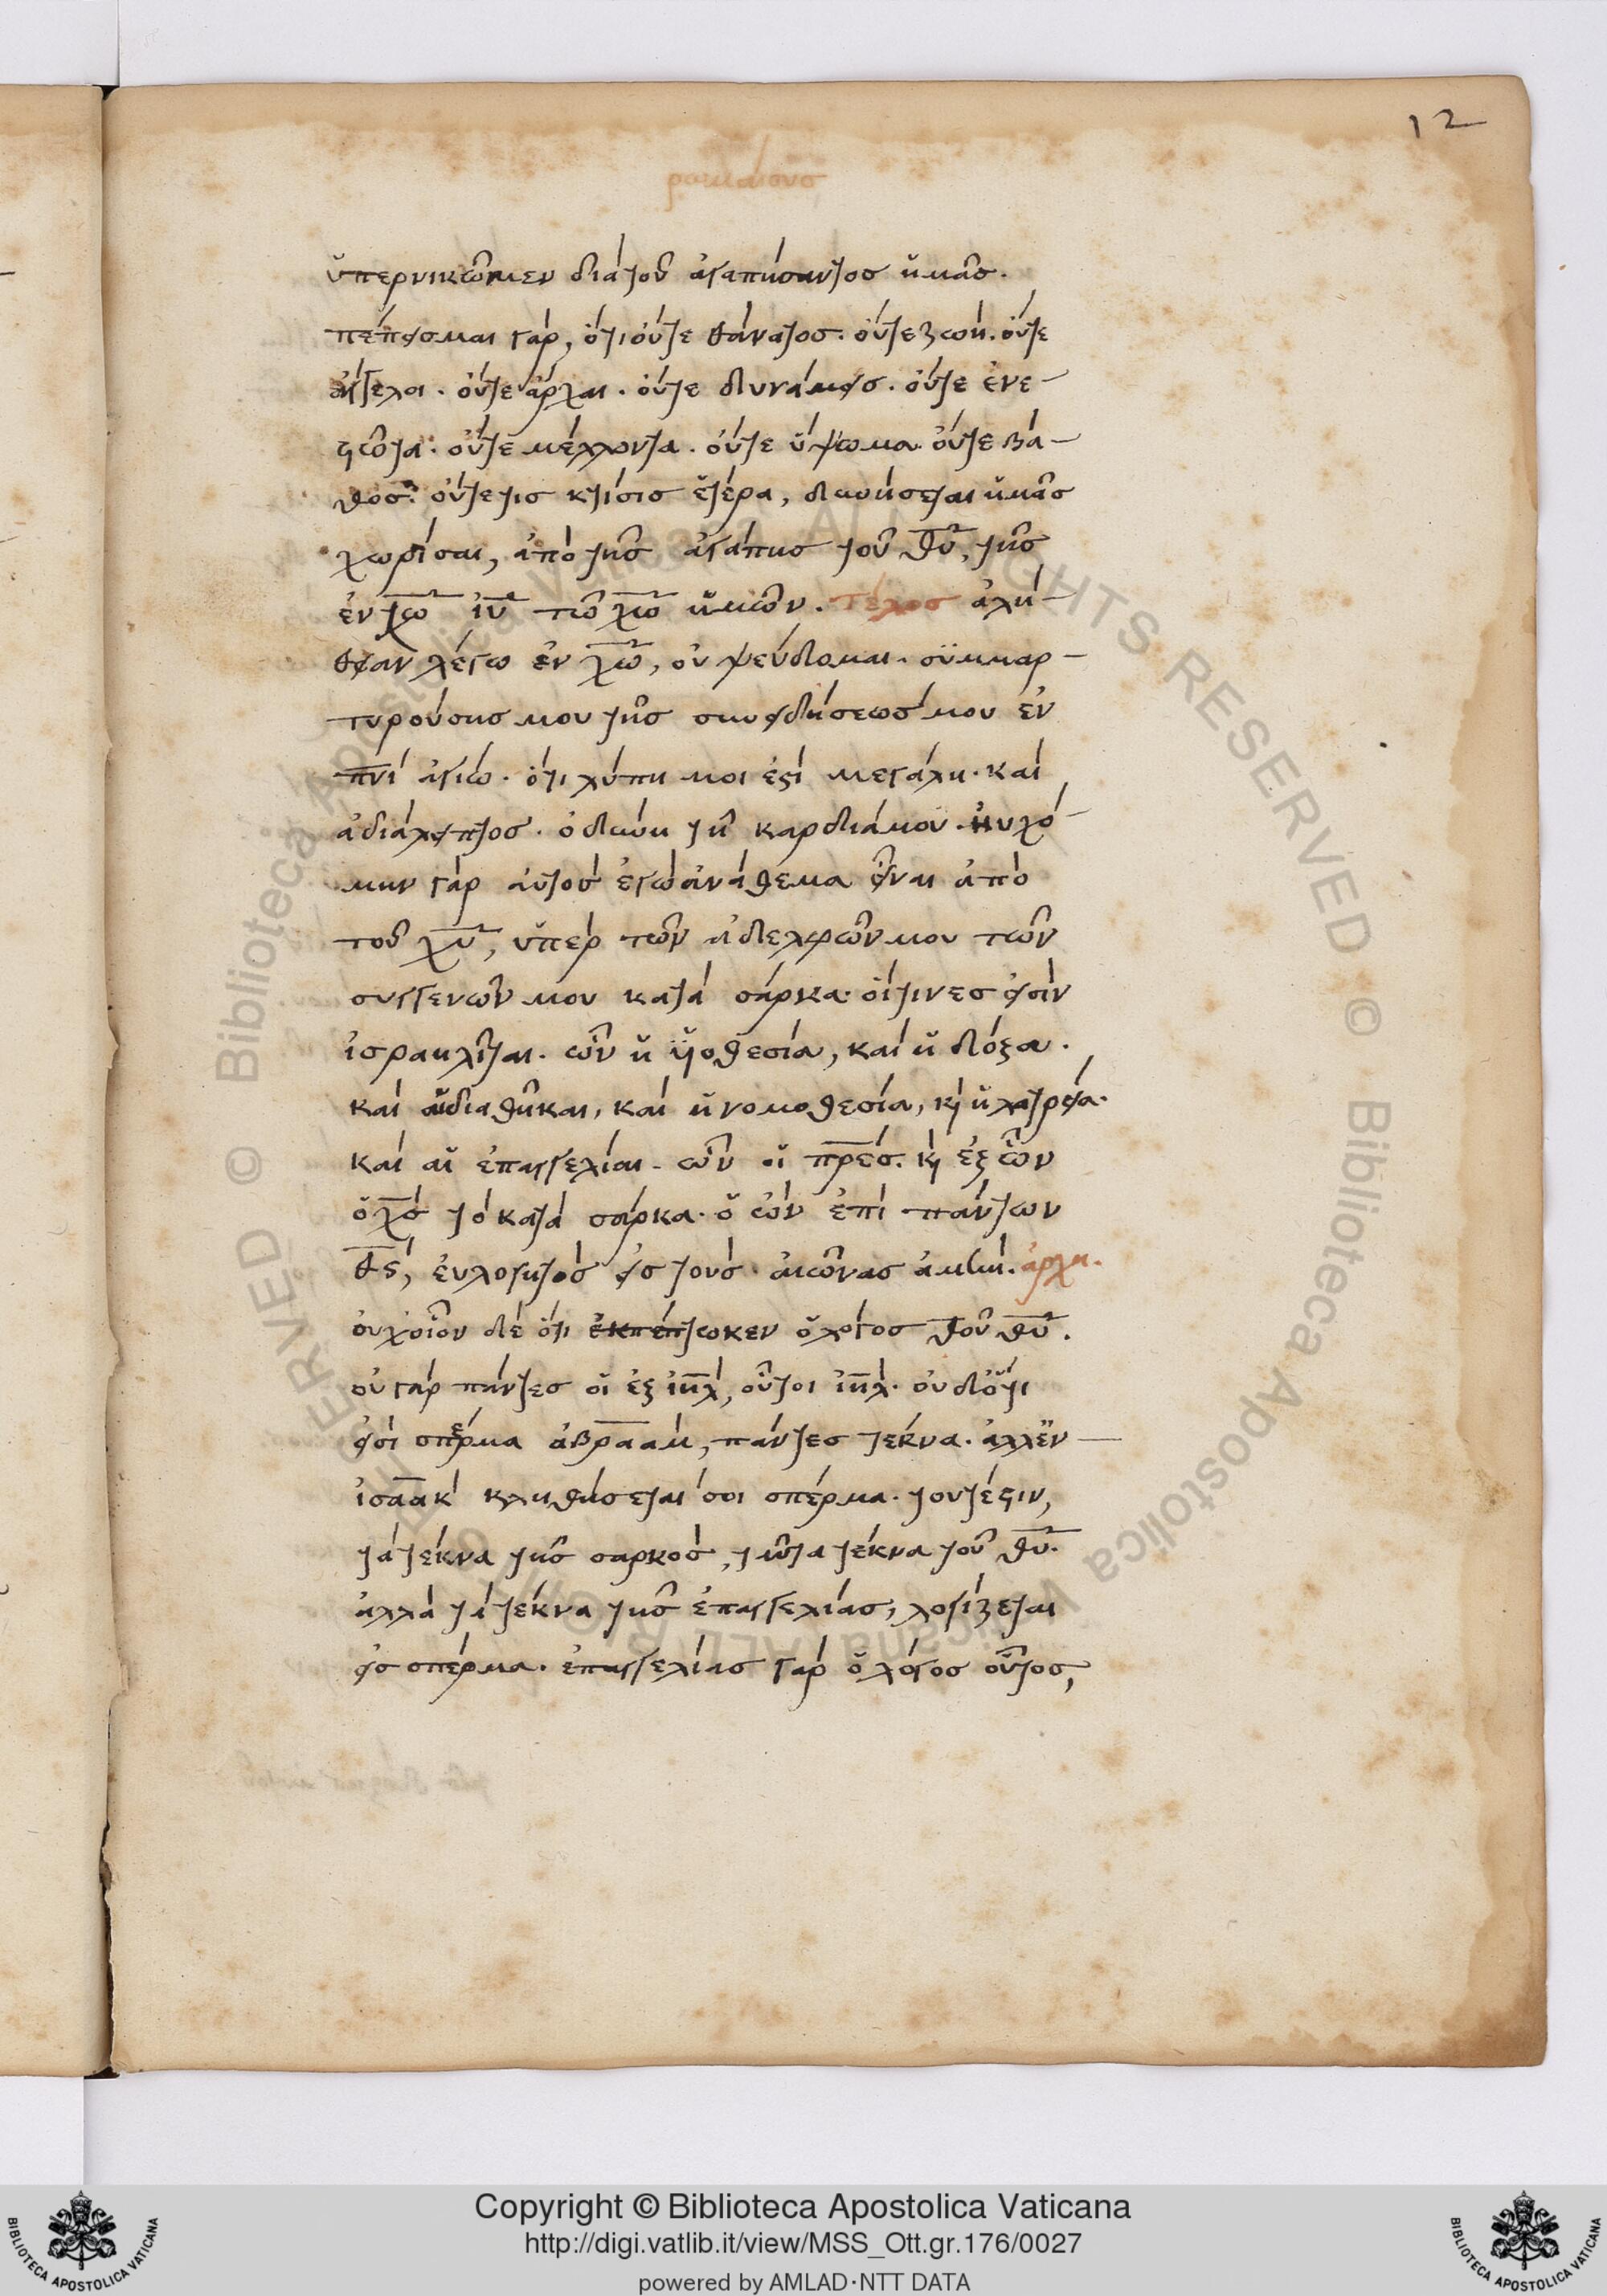 12
ρωμαίους
ὑπερνικῶμεν διὰ τοῦ ἀγαπήσαντος ἡμᾶς.
πέπεισμαι γὰρ, ὅτι οὔτε θάνατος. οὔτε ζωὴ. οὔτε
ἄγγελοι. οὔτε ἀρχαι. οὔτε δυνάμεις. οὔτε ἐνε-
στῶτα. οὔτε μέλλοντα. οὔτε ὕψωμα. οὔτε βά-
θος. οὔτε τις κτίσις ἑτέρα, δυνήσεται ἡμᾶς
χωρίσαι, ἀπὸ τῆς ἀγάπης τοῦ θυ, τῆς
ἐν χω ιυ τῶ κω ἡμῶν. τέλος ἀλή-
θειαν λέγω ἐν χω, οὐ ψεύδομαι. συμμαρ-
τυρούσης μου τῆς συνειδήσεώς μου ἐν
πνι ἁγίω. ὅτι λύπη μοι ἐστὶ μεγάλη. καὶ
ἀδιάλειπτος. ὀδύνη τῆ καρδία μου. ηὐχό-
μην γὰρ αὐτὸς ἐγὼ ἀνάθεμα εἶναι ἀπὸ
τοῦ χυ, ὑπὲρ τῶν ἀδελφῶν μου τῶν
συγγενῶν μου κατὰ σάρκα. οἵτινες εἰσὶν
ἰσραηλῖται. ὧν ἡ υἱοθεσία, καὶ ἡ δόξα.
καὶ αἱ διαθῆκαι, καὶ ἡ νομοθεσία, κὶ ἡ λατρεία.
καὶ αἱ ἐπαγγελίαι. ὧν οἱ πρες. κὶ ἐξ ὧν
ὁ χς τὸ κατὰ σάρκα. ὁ ὢν ἐπὶ πάντων
θς, εὐλογητὸς εἰς τοὺς αἰῶνας ἀμήν. ἀρχη.
οὐχ οἷον δὲ ὅτι ἐκπέπτωκεν ὁ λόγος τοῦ θυ.
οὐ γὰρ πάντες οἱ ἐξ ιηλ, οὗτοι ιηλ. οὐδ ὅτι
εἰσὶ σπέρμα ἀβραὰμ, πάντες τέκνα. ἀλλ ἐν
ἰσαὰκ κληθήσεται σοι σπέρμα. τουτέστιν,
τὰ τέκνα τῆς σαρκὸς, ταῦτα τέκνα τοῦ θυ.
ἀλλὰ τὰ τέκνα τῆς ἐπαγγελίας, λογίζεται
εἰς σπέρμα. ἐπαγγελίας γὰρ ὁ λόγος οὗτος,
Copyright © Biblioteca Apostolica Vaticana
http://digi.vatlib.it/view/MSS_Ott.gr.176/0027
powered by AMLAD·NTT DATA